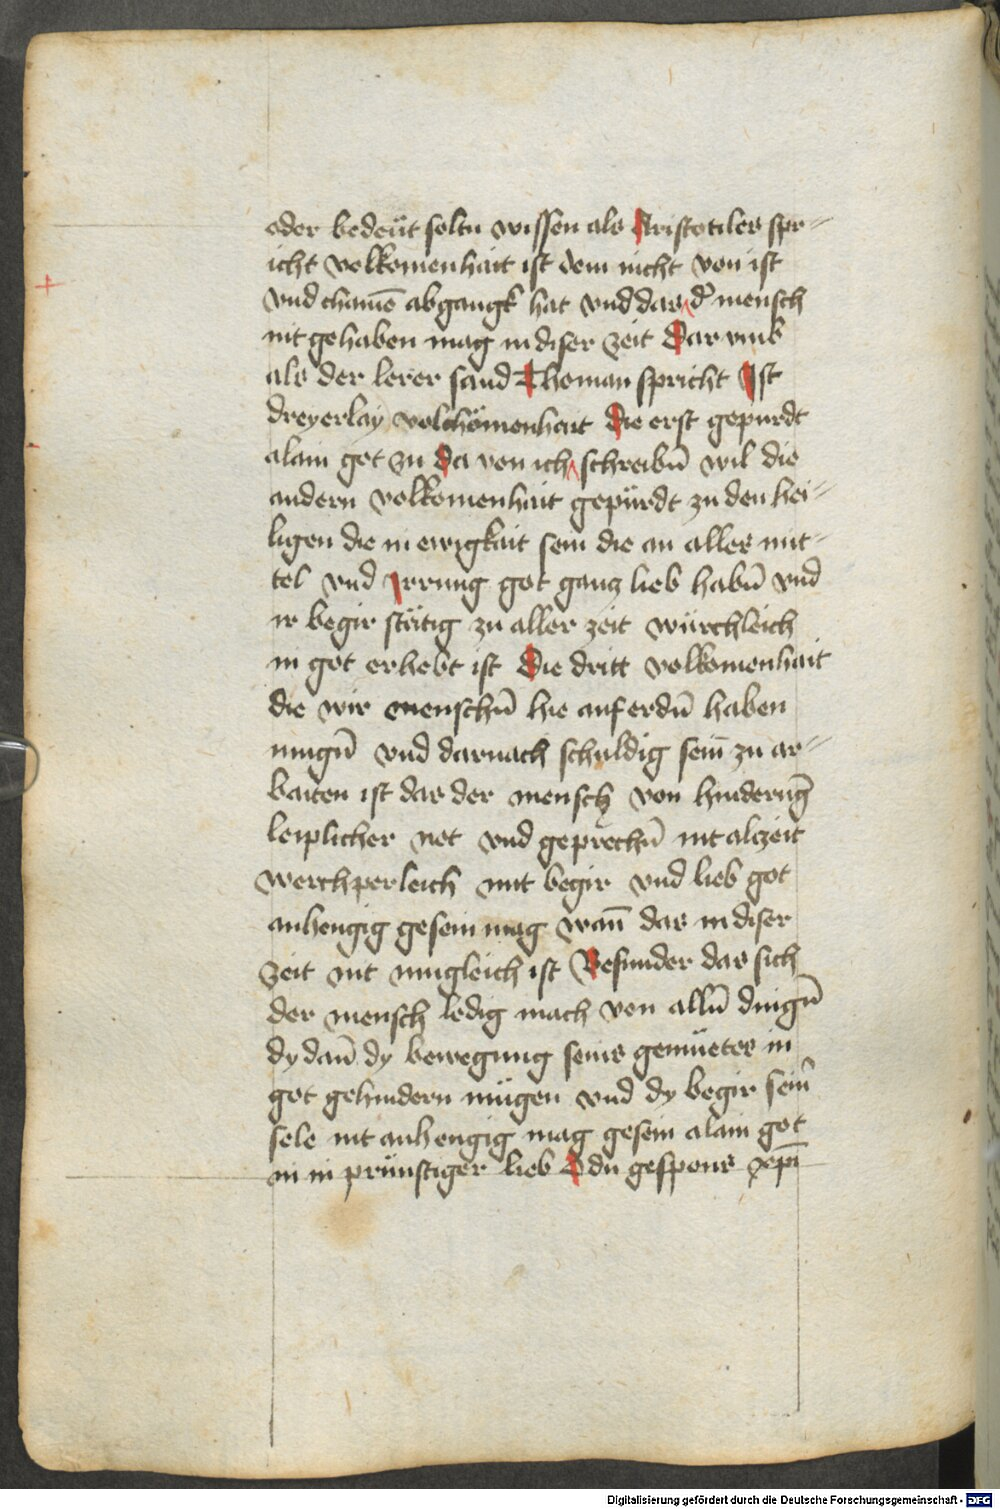 oder bedeüt soltu wissen als Aristotiles spr-
icht volkomenhait ist dem nicht von ist
vnd chainē abgangk hat vnd das d' mensch
nit gehaben mag in diser zeit Dar vmb
als der lerer sand Thoman spricht Ist
dreyerlay volchömenhait Die erst gepurdt
alain got zu Da von ich schreibn̄ wil die
andern volkomenhait gepürdt zu den hei-
ligen die in ewigkait sein die an alles mit-
tel vnd Irrung got gancz lieb habn̄ vnd
ir begir stätig zu aller zeit würchleich
in got erhebt ist Die dritt volkomenhait
die wir menschn̄ hie auf erdn̄ haben
mugn̄ vnd darnach schuldig sein zu ar-
baiten ist das der mensch von hinderūg
leiplicher not vnd geprechn̄ nit alczeit
werchperleich mit begir vnd lieb got
anhengig gesein mag wan̄ das in diser
zeit nit mugleich ist Besunder das sich
der mensch ledig mach von alln̄ dingn̄
dy dan̄ dy bewegung seins gemüetes in
got gehindern mügen vnd dy begir sein̄
sele nit anhengig mag gesein alain got
in in prünstiger lieb O du gespons xp̄i
Digitalisierung gefördert durch die Deutsche Forschungsgemeinschaft - DFG